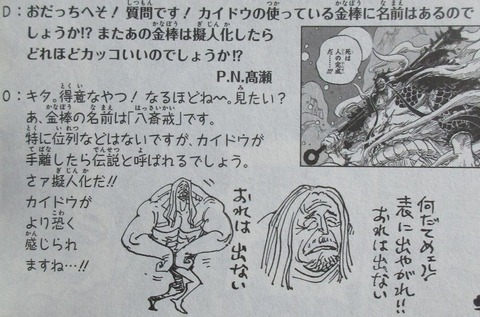 D：おだっちへそ！質問です！カイドウの使っている金棒に名前はあるので
しょうか!? またあの金棒は擬人化したら
どれほどカッコいいのでしょうか!?
P.N.髙瀬
O：キタ。得意なやつ！なるほどね〜。見たい？
あ、金棒の名前は「八斎戒」です。
特に位列などはないですが、カイドウが
手離したら伝説と呼ばれるでしょう。
さァ擬人化だ!!
カイドウが
より恐く
感じられ
ますね…!!
死は
人の完成
だ!!!
おれは出ない
何だてめェル!
表に出やがれ!!
おれは出ない